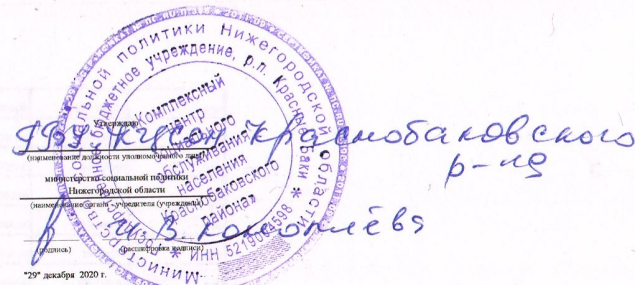 Утверждаю
ГБУ "КЦСОН Краснобаковского
р-на
(наименование должности уполномоченного лица)
министерство социальной политики
Нижегородской области
(наименование органа - учредителя (учреждения)
И.В. Коноплёва
(подпись) (расшифровка подписи)
"29" декабря 2020 г.
Министерство социальной политики Нижегородской области
Государственное бюджетное учреждение, р.п. Красные Баки
"Комплексный
центр
социального
обслуживания
населения
Краснобаковского
района"
* ИНН 5219004598 *